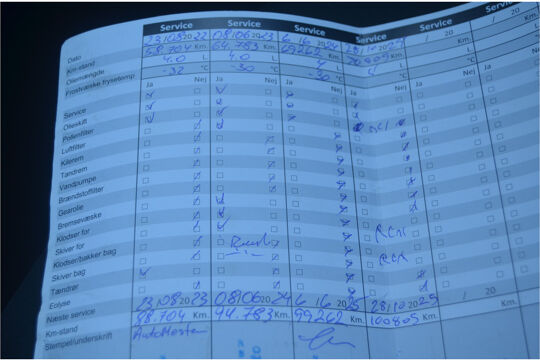 Service Service Service Service Service Service
Dato 23/08 2022 08/06 2023 6/6 2024 28/10 20 / 20 / 20
Km-stand 58.704 Km. 64.783 Km. 69262 Km. Km. Km. Km.
Oliemængde 4.0 L 4.0 L 4 L 4 L L
Frostvæske frysetemp -32 °C -30 °C -30 °C °C °C
Ja Nej Ja Nej Ja Nej Ja Nej Ja Nej Ja
Service
Olieskift
Pollenfilter
Luftfilter
Kilerem
Tandrem
Vandpumpe
Brændstoffilter
Gearolie
Bremsevæske
Klodser for
Skiver for
Klodser/bakker bag
Skiver bag
Tændrør
Eolyse
Næste service 23/08 2023 08/06 2024 6/6 2025 28/10 20 / 20 / 20
Km-stand 88.704 Km. 94.783 Km. 99262 Km. 100809 Km. Km. Km.
Stempel/underskrift